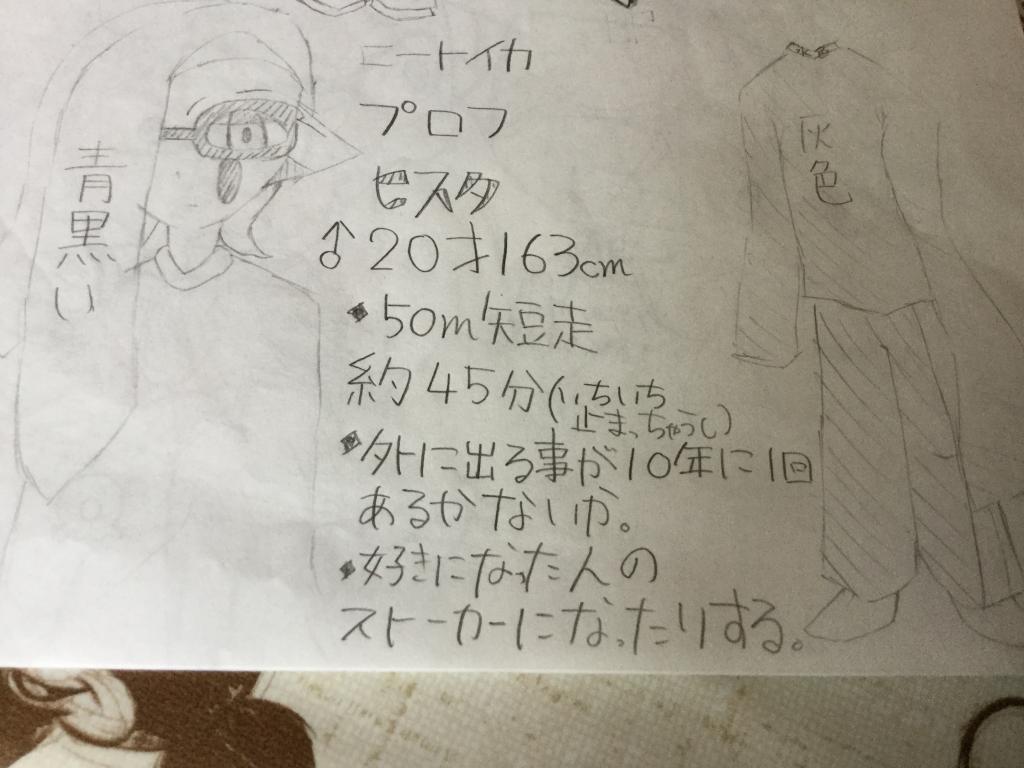 青黒い
ニートイカ
プロフ
ビスタ
♂20才163cm
・50m短走
約45分(いちいち
止まっちゃうし)
・外に出る事が10年に1回
あるかないか。
・好きになった人の
ストーカーになったりする。
灰色